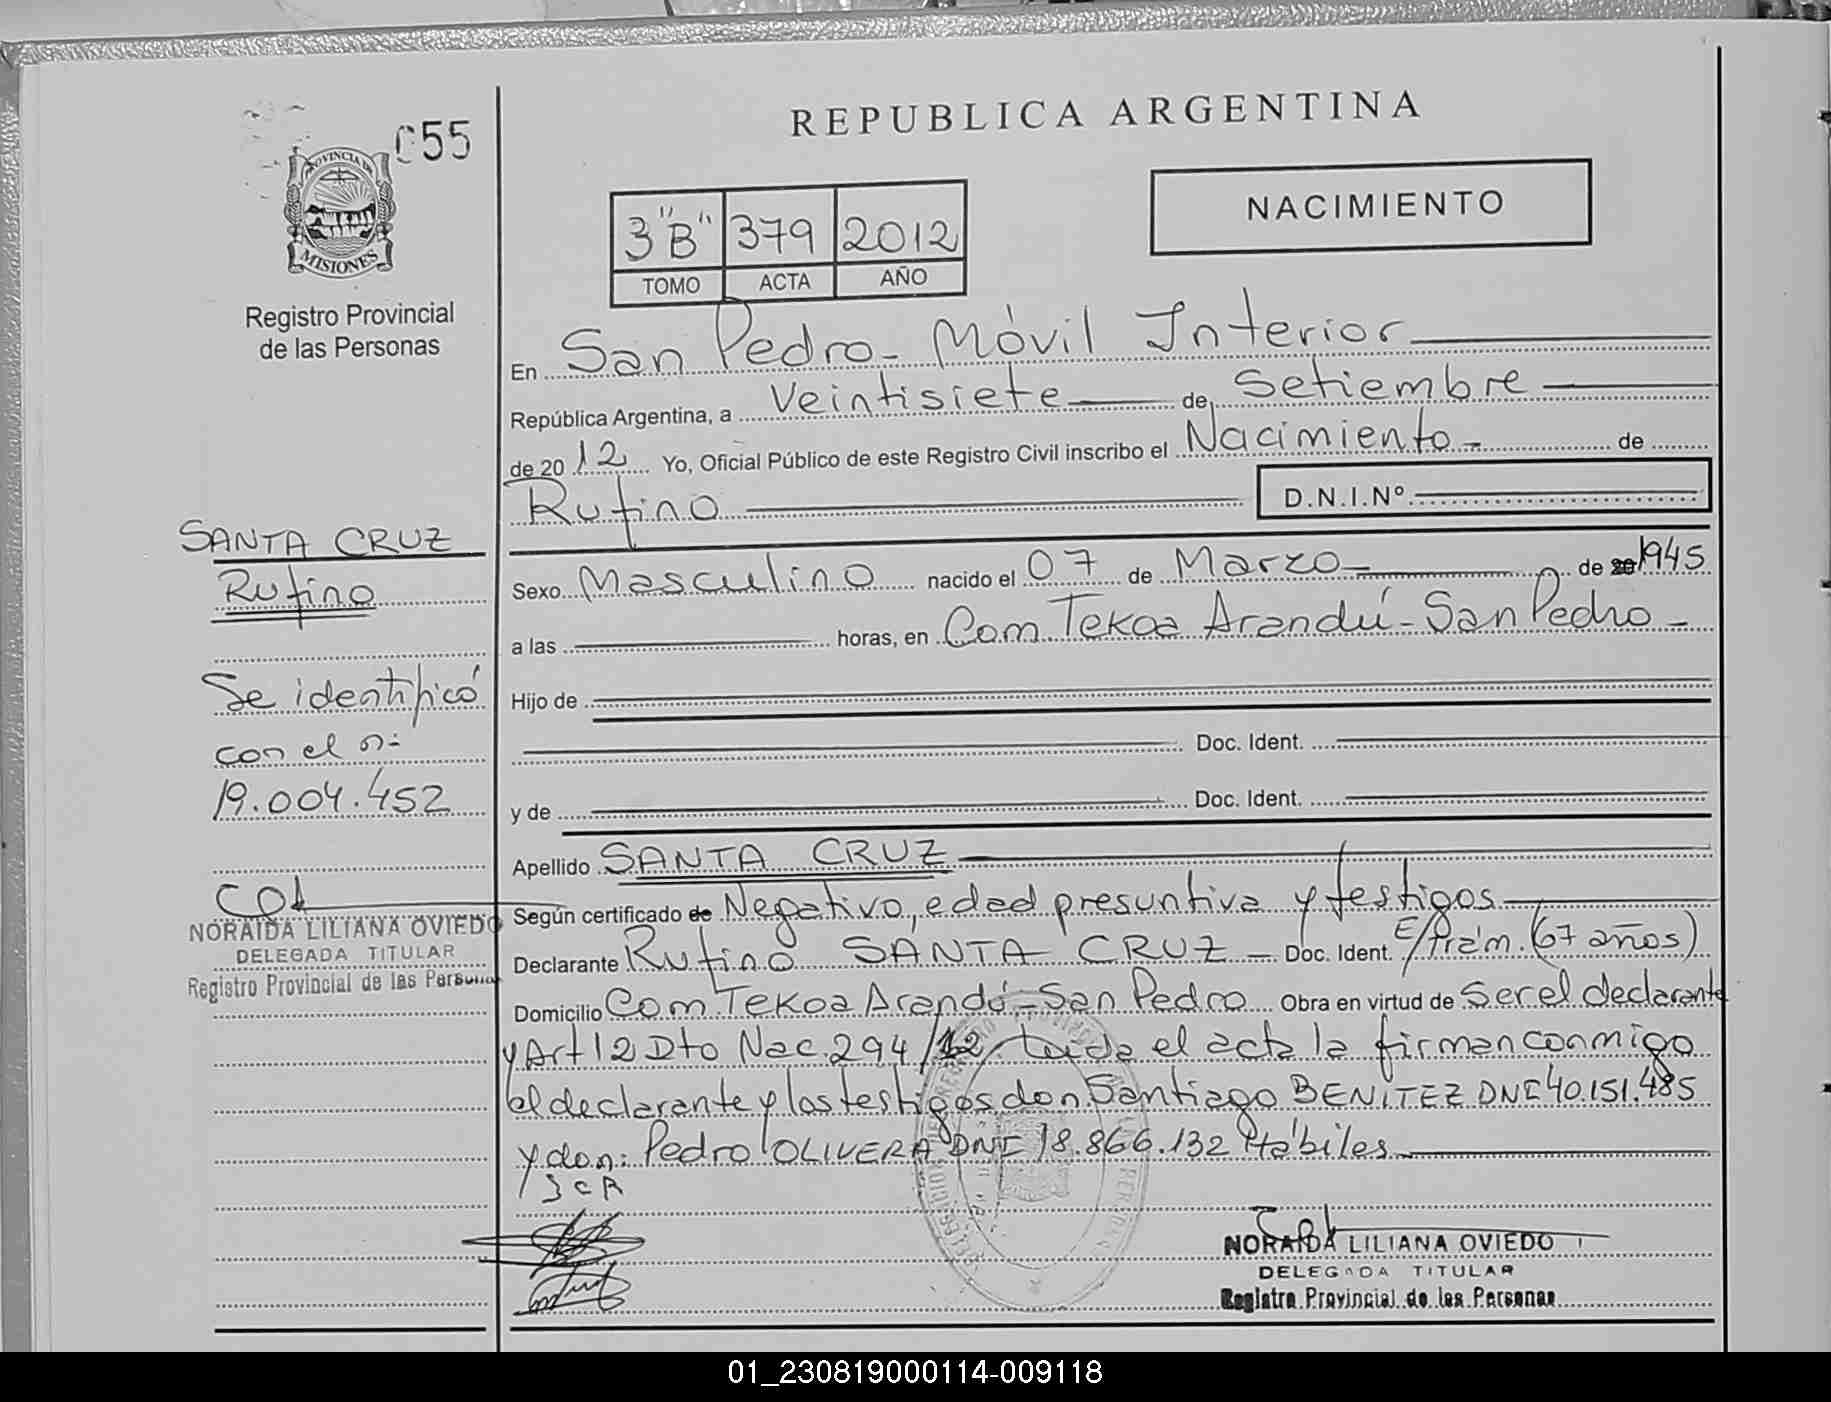 055
PROVINCIA DE
MISIONES
Registro Provincial
de las Personas
SANTA CRUZ
Rufino
Se identificó
con el n:
19.004.452
NORAIDA LILIANA OVIEDO
DELEGADA TITULAR
Registro Provincial de las Personas
REPUBLICA ARGENTINA
3"B" 379 2012
TOMO ACTA AÑO
NACIMIENTO
En San Pedro - Móvil Interior
República Argentina, a Veintisiete de Setiembre
de 2012 Yo, Oficial Público de este Registro Civil inscribo el Nacimiento - de
Rufino D.N.I.Nº
Sexo Masculino nacido el 07 de Marzo - de 1945
a las horas, en Com. Tekoa Arandú - San Pedro -
Hijo de
Doc. Ident.
y de Doc. Ident.
Apellido SANTA CRUZ
Según certificado de Negativo, edad presuntiva y testigos
Declarante Rufino SANTA CRUZ - Doc. Ident. E/trám. (67 años)
Domicilio Com. Tekoa Arandú - San Pedro Obra en virtud de Ser el declarante
y Art 12 Dto Nac. 294/12. Leida el acta la firman conmigo
el declarante y los testigos don Santiago BENITEZ DNI 40.151.485
y don: Pedro OLIVERA DNI 18.866.132 Hábiles
NORAIDA LILIANA OVIEDO
DELEGADA TITULAR
Registro Provincial de las Personas
01_230819000114-009118